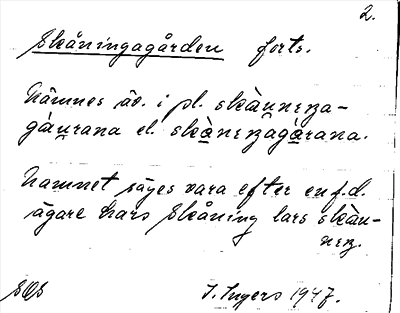 2.
Skåningagården forts.
Nämnes äv. i pl. skåu̯nıŋa-
gáu̯rana el. skànıŋagàrana.
Namnet säges vara efter en f.d.
ägare Lars Skåning lars skåu̯-
nıŋ.
SOS I. Ingers 1947.